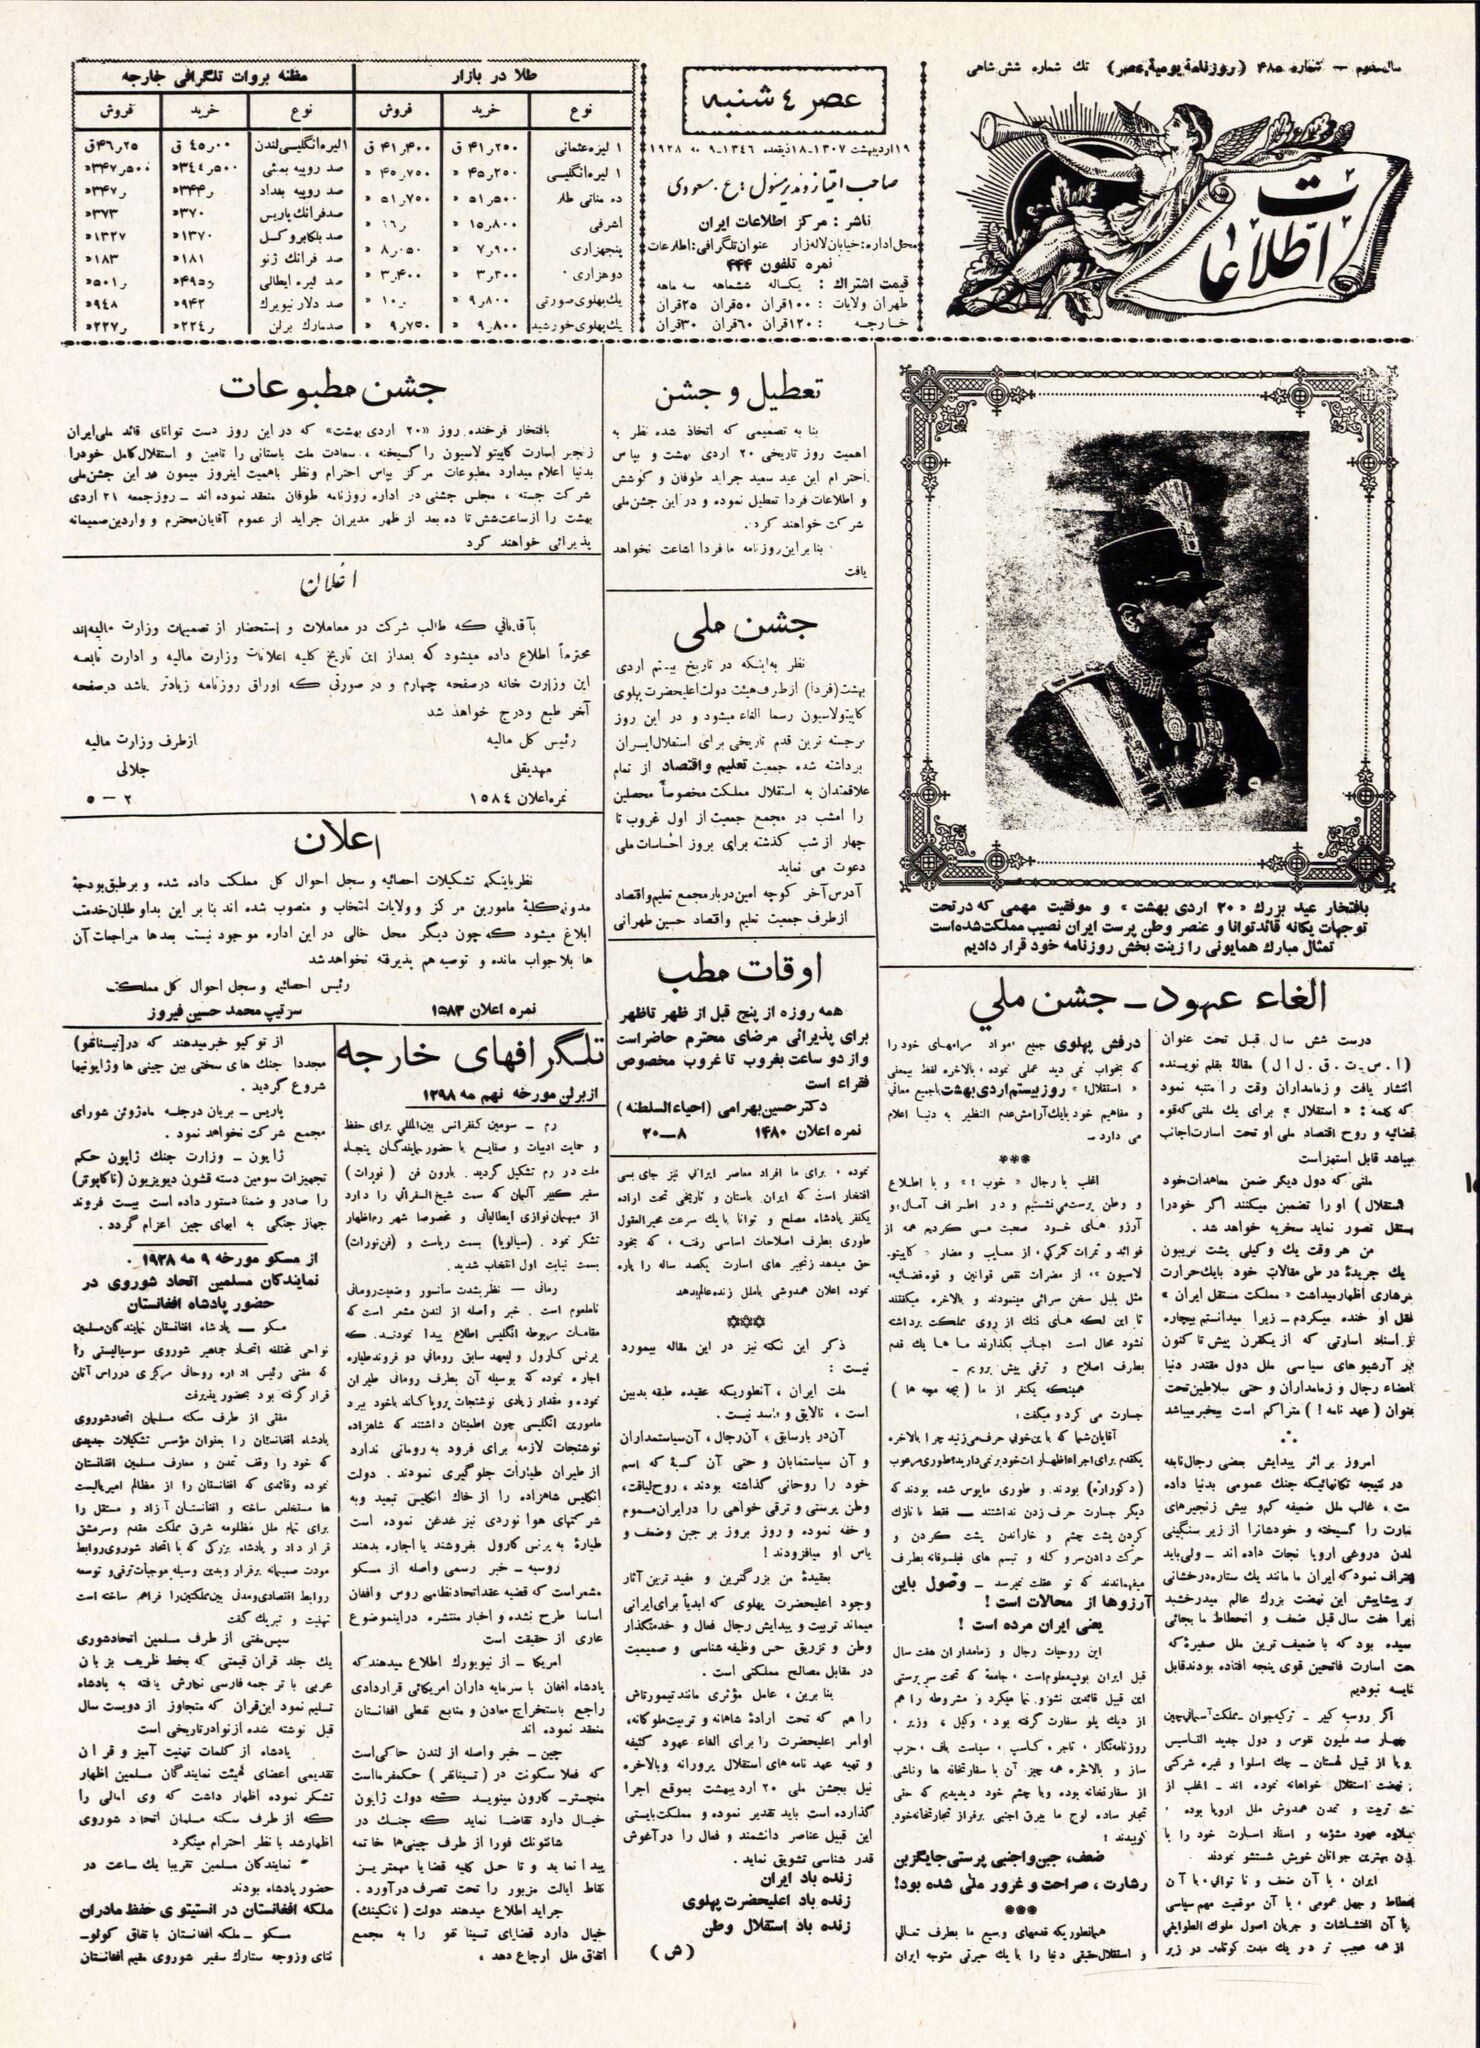 سال دوم — شماره ۴۸۵ (روزنامه یومیه عصر) تك شماره شش شاهی
اطلاعات
عصر ٤ شنبه
۱۹ اردیبهشت ۱۳۰۷-۱۸ ذیقعده ۱۳۴۶-۹ مه ۱۹۲۸
صاحب امتیاز و مدیر مسئول : ع . مسعودی
ناشر : مرکز اطلاعات ایران
محل اداره: خیابان لاله زار عنوان تلگرافی: اطلاعات
نمره تلفون ۴۴۴
قیمت اشتراك : یکساله ششماهه سه ماهه
طهران ولایات : ۱۰۰ قران ۵۰ قران ۲۵ قران
خارجه : ۱۲۰ قران ۶۰ قران ۳۰ قران
طلا در بازار
نوع خرید فروش
۱ لیره عثمانی ۴۱٫۲۵۰ ق ۴۱٫۴۰۰ ق
۱ لیره انگلیسی ۴۵٫۲۵۰ « ۴۵٫۷۵۰ «
ده مناتی طلا ۵۱٫۵۰۰ « ۵۱٫۷۵۰ «
اشرفی ۱۵٫۸۰۰ « ۱۶٫ «
پنجهزاری ۷٫۹۰۰ « ۸٫۰۵۰ «
دوهزاری ۳٫۲۰۰ « ۳٫۴۰۰ «
یك پهلوی صورتی ۹٫۸۰۰ « ۱۰٫ «
یك پهلوی خورشید ۹٫۸۰۰ « ۹٫۷۵۰ «
مظنه بروات تلگرافی خارجه
نوع خرید فروش
۱ لیره انگلیسی لندن ۴۵٫۰۰ ق ۴۶٫۲۵ ق
صد روپیه بمبئی ۳۴۴٫۵۰۰ « ۳۴۷٫۵۰۰ «
صد روپیه بغداد ۳۴۴٫ « ۳۴۷٫ «
صد فرانك پاریس ۳۷۰ « ۳۷۳ «
صد بلکا بروکسل ۱۳۷۰ « ۱۳۲۷ «
صد فرانك ژنو ۱۸۱ « ۱۸۳ «
صد لیره ایطالی ۴۹۵٫ « ۵۰۱٫ «
صد دلار نیویرك ۹۴۲ « ۹۴۸ «
صد مارك برلن ۲۲۴٫ « ۲۲۷٫ «
بافتخار عید بزرك « ۲۰ اردی بهشت » و موفقیت مهمی که در تحت
توجهات یگانه قائد توانا و عنصر وطن پرست ایران نصیب مملکت شده است
تمثال مبارك همایونی را زینت بخش روزنامه خود قرار دادیم
الغاء عهود ـ جشن ملی
درست شش سال قبل تحت عنوان
(ا . س . ت . ق . ل . ا ل ) مقالهٔ بقلم نویسنده
انتشار یافت و زمامداران وقت را متنبه نمود
که کلمه : « استقلال » برای یك ملتی که قوه
قضائیه و روح اقتصاد ملی او تحت اسارت اجانب
میباشد قابل استهزاست
ملتی که دول دیگر ضمن معاهدات خود
استقلال) او را تضمن میکنند اگر خود را
مستقل تصور نماید سخریه خواهد شد .
من هر وقت یك وکیلی پشت تریبون
یك جریدهٔ در طی مقالات خود با یك حرارت
سرشاری اظهار میداشت « مملکت مستقل ایران »
بعقل او خنده میکردم ـ زیرا میدانستم بیچاره
از اسناد اسارتی که از یکقرن پیش تا کنون
در آرشیو های سیاسی ملل دول مقتدر دنیا
بامضاء رجال و زمامداران و حتی سلاطین تحت
عنوان ( عهد نامه ! ) متراکم است بیخبر میباشد
امروز بر اثر پیدایش بعضی رجال نابغه
در نتیجه تکانهائیکه جنك عمومی بدنیا داده
است ، غالب ملل ضعیفه کم و بیش زنجیرهای
اسارت را گسیخته و خودشانرا از زیر سنگینی
تمدن دروغی اروپا نجات داده اند ـ ولی باید
اعتراف نمود که ایران ما مانند یك ستاره درخشانی
در پیشاپیش این نهضت بزرك عالم میدرخشید
زیرا هفت سال قبل ضعف و انحطاط ما بجائی
رسیده بود که با ضعیف ترین ملل صغیره که
تحت اسارت فاتحین قوی پنجه افتاده بودند قابل
مقایسه نبودیم
اگر روسیه کبیر ـ ترکیه جوان ـ مملکت آسمانی چین
چهار صد ملیون نفوس و دول جدید التاسیس
اروپا از قبیل لهستان ـ چك اسلوا و غیره شرکتی
در نهضت استقلال خواهانه نموده اند ـ اغلب از
حیث تربیت و تمدن همدوش ملل اروپا بوده
بعلاوه عهود مشئومه و اسناد اسارت خود را با
خون بهترین جوانان خویش شستشو نمودند
ایران ، با آن ضعف و ناتوانی ، با آن
انحطاط و جهل عمومی ، با آن موقعیت مهم سیاسی
با آن اغتشاشات و جریان اصول ملوك الطوایفی
از همه عجیب تر در یك مدت کوتاه ـ در زیر
درفش پهلوی جمیع مواد مرامهای خود را
که بخواب نمی دید عملی نموده ، بالاخره لفظ بیمعنی
« استقلال » روز بیستم اردی بهشت با جمیع معانی
و مفاهیم خود با یك آرامش عدم النظیر به دنیا اعلام
می دارد ـ
***
اغلب با رجال « خوب ! » و با اطلاع
و وطن پرست می نشستیم و در اطراف آمال و
آرزو های خود صحبت می کردیم همه از
فوائد و ثمرات گمرکی ، از معایب و مضار « کاپیتو
لاسیون » ، از مضرات نقص قوانین و قوه قضائیه ،
مثل بلبل سخن سرائی مینمودند و بالاخره میگفتند
تا این لکه های ننك از روی مملکت برداشته
نشود محال است اجانب بگذارند ما ها یك قدم
بطرف اصلاح و ترقی پیش برویم ـ
همینکه یکنفر از ما ( بچه مچه ها )
جسارت می کرد و میگفت :
آقایان شما که باین خوبی حرف می زنید چرا بالاخره
یکقدم برای اجراء اظهارات خود بر نمیدارید؟ طوری مرعوب
( دکوراژه ) بودند و طوری مایوس شده بودند که
دیگر جسارت حرف زدن نداشتند ـ فقط با نازك
کردن پشت چشم و خاراندن پشت گردن و
حرکت دادن سر و کله و تبسم های فیلسوفانه بطرف
میفهماندند که تو عقلت نمیرسد ـ وصول باین
آرزوها از محالات است !
یعنی ایران مرده است !
این روحیات رجال و زمامداران هفت سال
قبل ایران بود ، معلوم است ، جامعهٔ که تحت سرپرستی
این قبیل قائدین نشو و نما میکرد و مشروطه را هم
از دیك پلو سفارت گرفته بود ، وکیل ، وزیر ،
روزنامه نگار ، تاجر ، کاسب ، سیاست باف ، حزب
ساز و بالاخره همه چیز آن با سفارتخانه ها و ناشی
از سفارتخانه بوده و با چشم خود دیدیدیم که حتی
تجار ساده لوح ما بیرق اجنبی بر فراز تجارتخانه خود
کوبیدند !
ضعف ، جبن و اجنبی پرستی جایگزین
رشارت ، صراحت و غرور ملی شده بود!
***
همانطوریکه قدمهای وسیع ما بطرف تعالی
و استقلال حقیقی دنیا را با یك حیرتی متوجه ایران
تعطیل و جشن
بنا به تصمیمی که اتخاذ شده نظر به
اهمیت روز تاریخی ۲۰ اردی بهشت و بپاس
احترام این عید سعید جراید طوفان و کوشش
و اطلاعات فردا تعطیل نموده و در این جشن ملی
شرکت خواهند کرد .
بنابراین روزنامه ما فردا اشاعت نخواهد
یافت
جشن ملی
نظر به اینکه در تاریخ بیستم اردی
بهشت (فردا) از طرف هیئت دولت اعلیحضرت پهلوی
کاپیتولاسیون رسما الغاء میشود و در این روز
برجسته ترین قدم تاریخی برای استقلال ایران
برداشته شده جمعیت تعلیم و اقتصاد از تمام
علاقمندان به استقلال مملکت مخصوصاً محصلین
را امشب در مجمع جمعیت از اول غروب تا
چهار از شب گذشته برای بروز احساسات ملی
دعوت می نماید
آدرس آخر کوچه امین دربار مجمع تعلیم و اقتصاد
از طرف جمعیت تعلیم و اقتصاد حسین طهرانی
اوقات مطب
همه روزه از پنج قبل از ظهر تا ظهر
برای پذیرائی مرضای محترم حاضر است
و از دو ساعت بغروب تا غروب مخصوص
فقراء است
دکتر حسین بهرامی (احیاء السلطنه )
نمره اعلان ۱۴۸۰ ۸—۲۰
نموده ، برای ما افراد معاصر ایرانی نیز جای بسی
افتخار است که ایران باستان و تاریخی تحت اراده
یکنفر پادشاه مصلح و توانا با یك سرعت محیر العقول
طوری بطرف اصلاحات اساسی رفته ، که بخود
حق میدهد زنجیر های اسارت یکصد ساله را پاره
نموده اعلان همدوشی با ملل زنده عالم بدهد
***
ذکر این نکته نیز در این مقاله بیمورد
نیست :
ملت ایران ، آنطوریکه عقیده طبقه بدبین
است ، نالایق و فاسد نیست .
آن دربار سابق ، آن رجال ، آن سیاستمداران
و آن سیاستمابان و حتی آن کسانی که اسم
خود را روحانی گذاشته بودند ، روح لیاقت ،
وطن پرستی و ترقی خواهی را در ایران مسموم
و خفه نموده و روز بروز بر جبن و ضعف و
یاس او میافزودند !
بعقیدهٔ من بزرگترین و مفید ترین آثار
وجود اعلیحضرت پهلوی که ابدیاً برای ایرانی
میماند تربیت و پیدایش رجال فعال و خدمتگذار
وطن و تزریق حس وظیفه شناسی و صمیمیت
در مقابل مصالح مملکتی است .
بنا برین ، عامل مؤثری مانند تیمورتاش
را هم که تحت ارادهٔ شاهانه و تربیت ملوکانه ،
اوامر اعلیحضرت را برای الغاء عهود کثیفه
و تهیه عهد نامه های استقلال پرورانه و بالاخره
نیل بجشن ملی ۲۰ اردیبهشت بموقع اجرا
گذارده است باید تقدیر نموده و مملکت بایستی
این قبیل عناصر دانشمند و فعال را در آغوش
قدر شناسی تشویق نماید .
زنده باد ایران
زنده باد اعلیحضرت پهلوی
زنده باد استقلال وطن
(ش)
جشن مطبوعات
بافتخار فرخنده روز «۲۰ اردی بهشت» که در این روز دست توانای قائد ملی ایران
زنجیر اسارت کاپیتولاسیون را گسیخته ، سعادت ملت باستانی را تامین و استقلال کامل خود را
بدنیا اعلام میدارد مطبوعات مرکز بپاس احترام و نظر باهمیت اینروز میمون در این جشن ملی
شرکت جسته ، مجلس جشنی در اداره روزنامه طوفان منعقد نموده اند ـ روز جمعه ۲۱ اردی
بهشت را از ساعت شش تا ده بعد از ظهر مدیران جراید از عموم آقایان محترم و واردین صمیمانه
پذیرائی خواهند کرد
اعلان
بآقایانی که طالب شرکت در معاملات و استحضار از تصمیمات وزارت مالیه اند
محترماً اطلاع داده میشود که بعد از این تاریخ کلیه اعلانات وزارت مالیه و ادارت تابعه
این وزارت خانه در صفحه چهارم و در صورتی که اوراق روزنامه زیادتر باشد در صفحه
آخر طبع و درج خواهد شد
رئیس کل مالیه از طرف وزارت مالیه
مهدیقلی جلالی
نمره اعلان ۱۵۸۴ ۲ — ۵
اعلان
نظر باینکه تشکیلات احصائیه و سجل احوال کل مملکت داده شده و بر طبق بودجهٔ
مدونه کلیهٔ مامورین مرکز و ولایات انتخاب و منصوب شده اند بنا بر این بداوطلبان خدمت
ابلاغ میشود که چون دیگر محل خالی در این اداره موجود نیست بعدها مراجعات آن
ها بلاجواب مانده و توصیه هم پذیرفته نخواهد شد
رئیس احصائیه و سجل احوال کل مملکت
نمره اعلان ۱۵۸۳ سرتیپ محمد حسین فیروز
تلگرافهای خارجه
از برلن مورخه نهم مه ۱۲۹۸
رم ـ سومین کنفرانس بین المللی برای حفظ
و حمایت ادبیات و صنایع با حضور نمایندگان پنجاه
ملت در رم تشکیل گردید . بارون فن ( نورات )
سفیر کبیر آلمان که سمت شیخ السفرائی را دارد
از میهمان نوازی ایطالیائی و مخصوصا شهر رم اظهار
تشکر نمود . (سیالویا) بسمت ریاست و (فن نورات)
بسمت نیابت اول انتخاب شدید .
رمانی ـ نظر بشدت سانسور وضعیت رومانی
نامعلوم است . خبر واصله از لندن مشعر است که
مقامات مربوطه انگلیس اطلاع پیدا نمودند . که
پرنس کارول و لیعهد سابق رومانی دو فروند طیاره
اجاره نموده که بوسیله آن بطرف رومانی طیران
نموده و مقدار زیادی نوشتجات پروپاکاند باخود ببرد
مامورین انگلیسی چون اطمینان داشتند که شاهزاده
نوشتجات لازمه برای فرود به رومانی ندارد
از طیران طیارات جلوگیری نمودند . دولت
انگلیس شاهزاده را از خاك انگلیس تبعید و به
شرکتهای هوا نوردی نیز غدغن نموده است
طیارهٔ به پرنس کارول بفروشند یا اجاره بدهند
روسیه ـ خبر رسمی واصله از مسکو
مشعر است که قضیه عقد اتحاد نظامی روس و افغان
اساسا طرح نشده و اخبار منتشره در این موضوع
عاری از حقیقت است
امریکا ـ از نیویورك اطلاع میدهند که
پادشاه افغان با سرمایه داران امریکائی قراردادی
راجع باستخراج معادن و منابع نفطی افغانستان
منعقد نموده اند
چین ـ خبر واصله از لندن حاکی است
که فعلا سکونت در ( تسینانفر ) حکمفرماست
منچستر ـ گاردن مینویسد که دولت ژاپون
خیال دارد تقاضا نماید که جنك در
شانتونك فورا از طرف چینی ها خاتمه
پیدا نماید و تا حل کلیه قضایا مهمترین
نقاط ایالت مزبور را تحت تصرف درآورد .
جراید اطلاع میدهند دولت (نانکینك)
خیال دارد قضایای تسینانفو را به مجمع
اتفاق ملل ارجاع دهد .
از توکیو خبر میدهند که در (تیسنانفو)
مجددا جنك های سختی بین چینی ها و ژاپونیها
شروع گردید .
پاریس ـ بریان در جلسه ماه ژوئن شورای
مجمع شرکت نخواهد نمود .
ژاپون ـ وزارت جنك ژاپون حکم
تجهیزات سومین دسته قشون دیویزیون (ناکایوتر)
را صادر و ضمنا دستور داده است بیست فروند
جهاز جنگی به آبهای چین اعزام گردد .
از مسکو مورخه ۹ مه ۱۹۲۸ .
نمایندگان مسلمین اتحاد شوروی در
حضور پادشاه افغانستان
مسکو ـ پادشاه افغانستان نمایندگان مسلمین
نواحی مختلفه اتحاد جماهیر شوروی سوسیالیستی را
که مفتی رئیس اداره روحانی مرکزی در راس آنان
قرار گرفته بود بحضور پذیرفت
مفتی از طرف سکنه مسلمان اتحاد شوروی
پادشاه افغانستان را بعنوان مؤسس تشکیلات جدیدی
که خود را وقف تمدن و معارف مسلمین افغانستان
نموده و قائدی که افغانستان را از مظالم امپریالیست
ها مستخلص ساخته و افغانستان آزاد و مستقل را
برای تمام ملل مظلومه شرق مملکت مقدم و سرمشق
قرار داد و پادشاه بزرگی که با اتحاد شوروی روابط
مودت صمیمانه برقرار و بدین وسیله موجبات ترقی و توسعه
روابط اقتصادی و مدنی بین مملکتین را فراهم ساخته است
تهنیت و تبریك گفت
سپس مفتی از طرف مسلمین اتحاد شوروی
یك جلد قران قیمتی که بخط ظریف بزبان
عربی با ترجمه فارسی نگارش یافته به پادشاه
تسلیم نمود این قران که متجاوز از دویست سال
قبل نوشته شده از نوادر تاریخی است
پادشاه از کلمات تهنیت آمیز و قران
تقدیمی اعضای هیئت نمایندگان مسلمین اظهار
تشکر نموده اظهار داشت که وی امالی را
که از طرف سکنه مسلمان اتحاد شوروی
اظهار شد با نظر احترام مینگرد
نمایندگان مسلمین تقریبا یك ساعت در
حضور پادشاه بودند
ملکه افغانستان در انستیتوی حفظ مادران
مسکو ـ ملکه افغانستان با تفاق کولو ـ
نتای و زوجه ستارك سفیر شوروی مقیم افغانستان